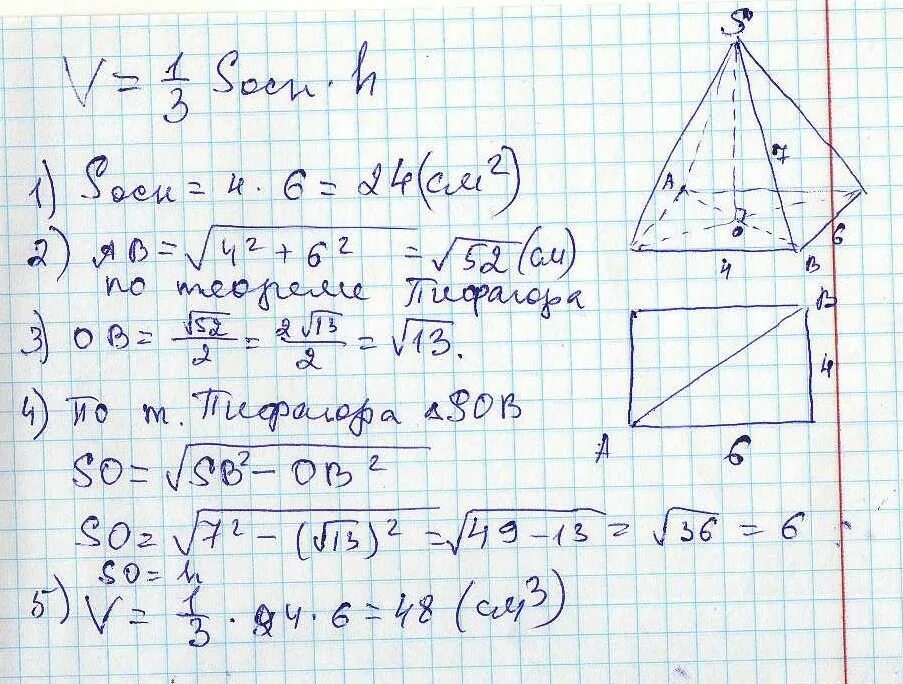 V = 1/3 Sосн · h
1) Sосн = 4 · 6 = 24 (см²)
2) AB = √(4² + 6²) = √52 (см)
по теореме Пифагора
3) OB = √52/2 = 2√13/2 = √13.
4) По т. Пифагора ΔSOB
SO = √(SB² − OB²)
SO = √(7² − (√13)²) = √(49 − 13) = √36 = 6
SO = h
5) V = 1/3 · 24 · 6 = 48 (см³)
S
7
A
O
6
4
B
B
4
A
6